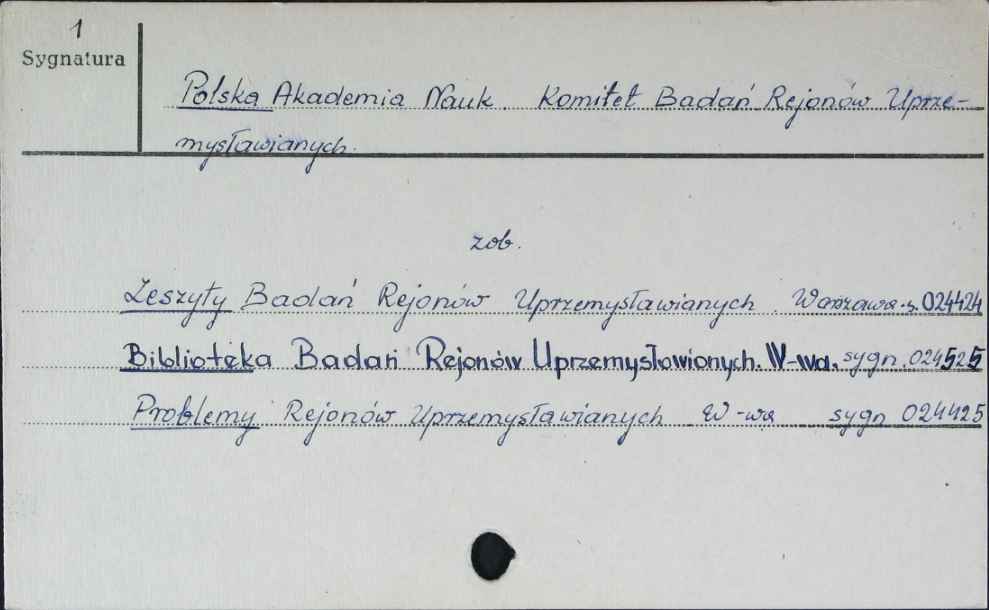 1
Sygnatura
Polska Akademia Nauk. Komitet Badań Rejonów Uprze-
mysławianych.
zob.
Zeszyty Badań Rejonów Uprzemysławianych. Warszawa s. 024424
Biblioteka Badań Rejonów Uprzemysłowionych. W-wa. sygn. 024525
Problemy Rejonów Uprzemysławianych W-wa sygn 024425